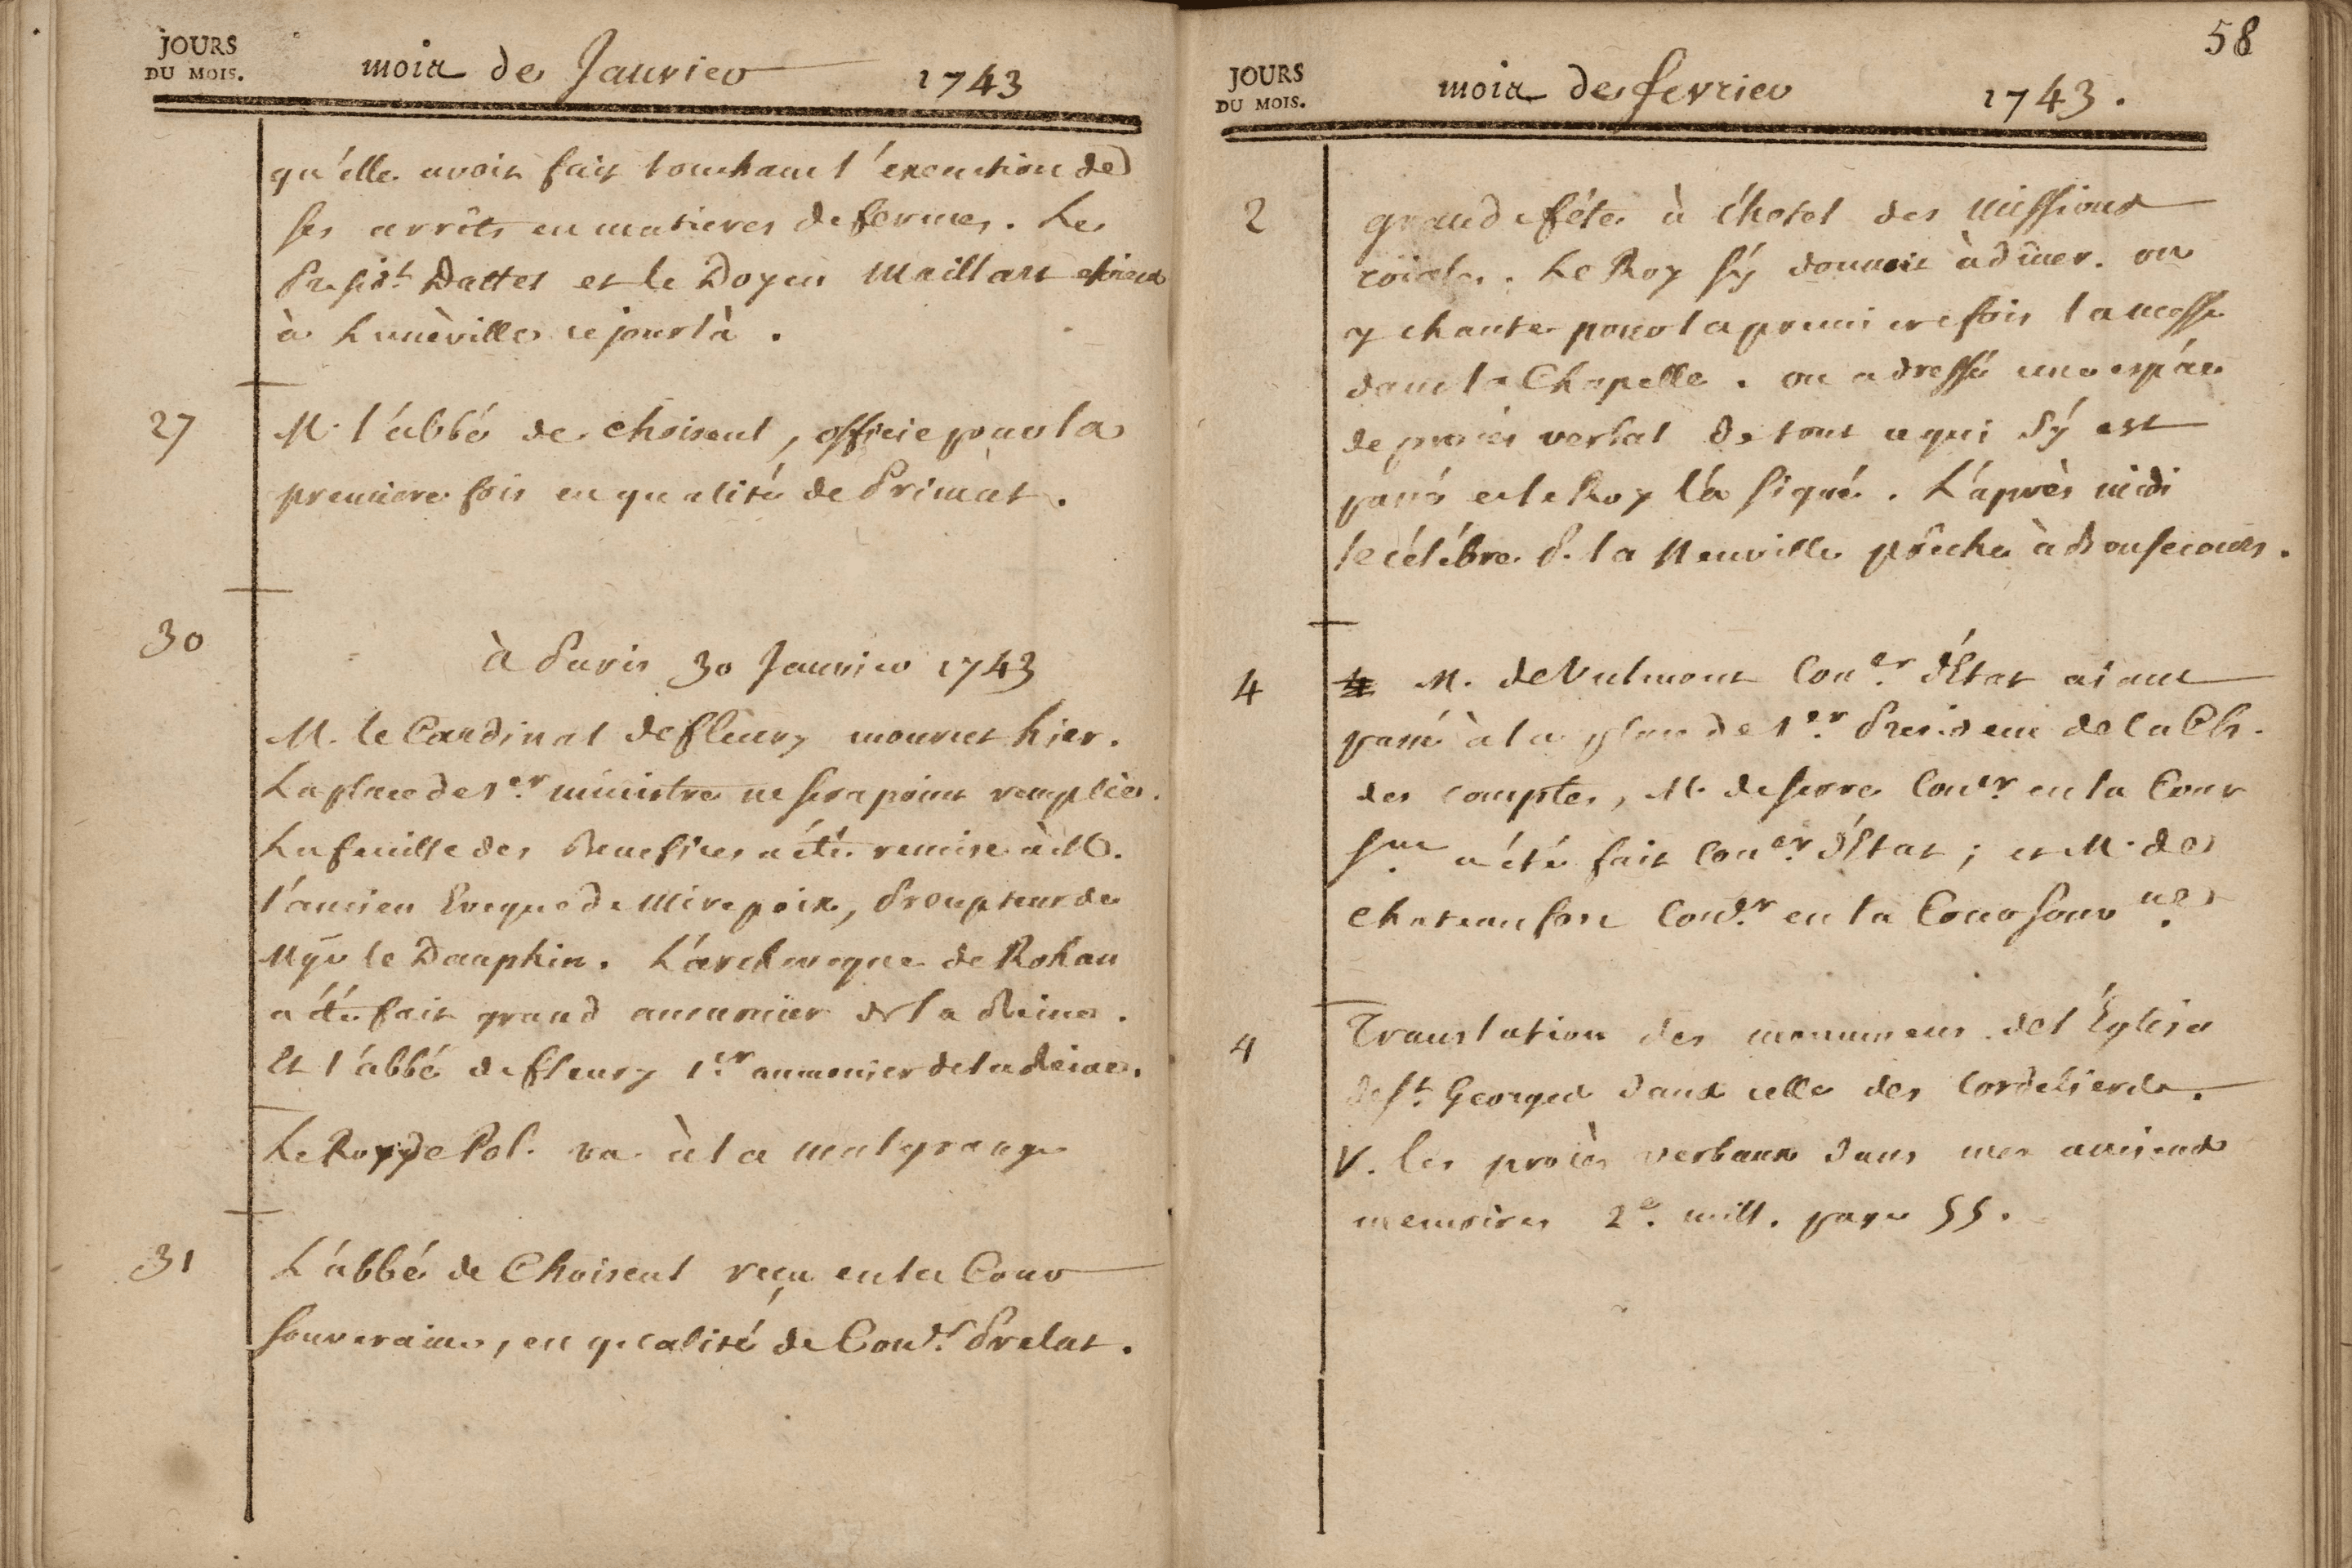 JOURS
DU MOIS.
mois de Janvier 1743
qu'elle avoit fait touchant l'execution de
ses arrêts en matieres de fermes. Le
Presidt. Dattel et le Doyen Maillart
à Lunèville ce jour là.
27 M. l'abbé de Choiseul, officie pour la
premiere fois en qualité de Primat.
30
à Paris 30 Janvier 1743
M. le Cardinal de fleury mourut hier.
La place de 1er. ministre ne sera point remplie.
La feuille des Benefices a été remise à M.
l'ancien Eveque de Mirepoix, Precepteur de
Mgr le Dauphin. L'archeveque de Rohan
a été fait grand aumonier de la Reine.
Et l'abbé de fleury 1er. aumonier de la Reine.
Le Roy de Pol. va à la malgrange
31 L'abbé de Choiseul reçu en la Cour
souveraine, en qualité de Conser. Prelat.
58
JOURS
DU MOIS.
mois de fevrier 1743.
2 grande fête à l'hotel des missions
roiales. Le Roy s'y donnoit à dîner. on
y chante pour la premiere fois la messe
dans la Chapelle. on a dressé une espéce
de procés verbal de tout ce qui s'y est
passé et le Roy l'a signé. L'après midi
le célébre P. la Neuville prêche à Bonsecours.
4 M. de Vulmont Coner. d'Etat aiant
passé à la place de 1er. President de la Ch.
des comptes, M. de serre Coner en la Cour
sne. a été fait Coner. d'Etat ; et M. de
chateaufort Coner. en la Cour souvne.
4 Translation des monumens de l'Eglise
de St. Georges dans celle des Cordeliers.
V. les procès verbaux dans mes anciens
memoires 2e. mill. page 55.